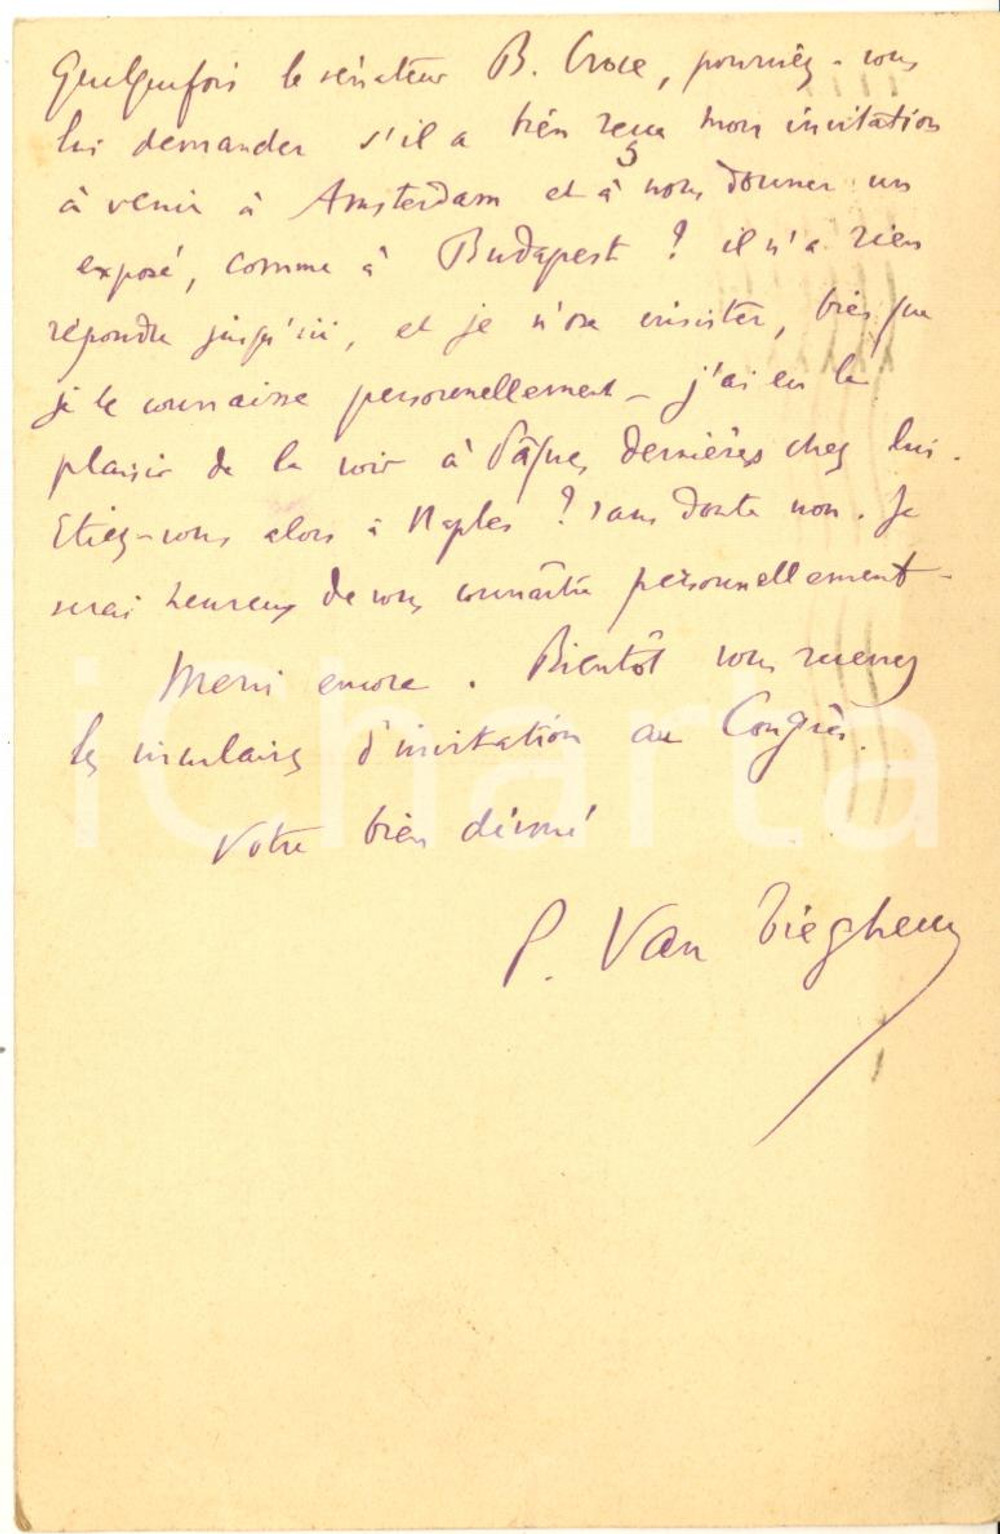 Quelquefois le sénateur B. Croce, pourriez-vous
lui demander s'il a bien reçu mon invitation
à venir à Amsterdam et à nous donner un
exposé, comme à Budapest ? il n'a rien
répondu jusqu'ici, et je n'ose insister, bien que
je le connaisse personnellement - j'ai eu le
plaisir de le voir à Pâques dernières chez lui.
Etiez-vous alors à Naples ? sans doute non. Je
serai heureux de vous connaître personnellement -
Merci encore. Bientôt vous recevrez
les circulaires d'invitation au Congrès.
Votre bien dévoué
P. Van Tieghem
iCharta